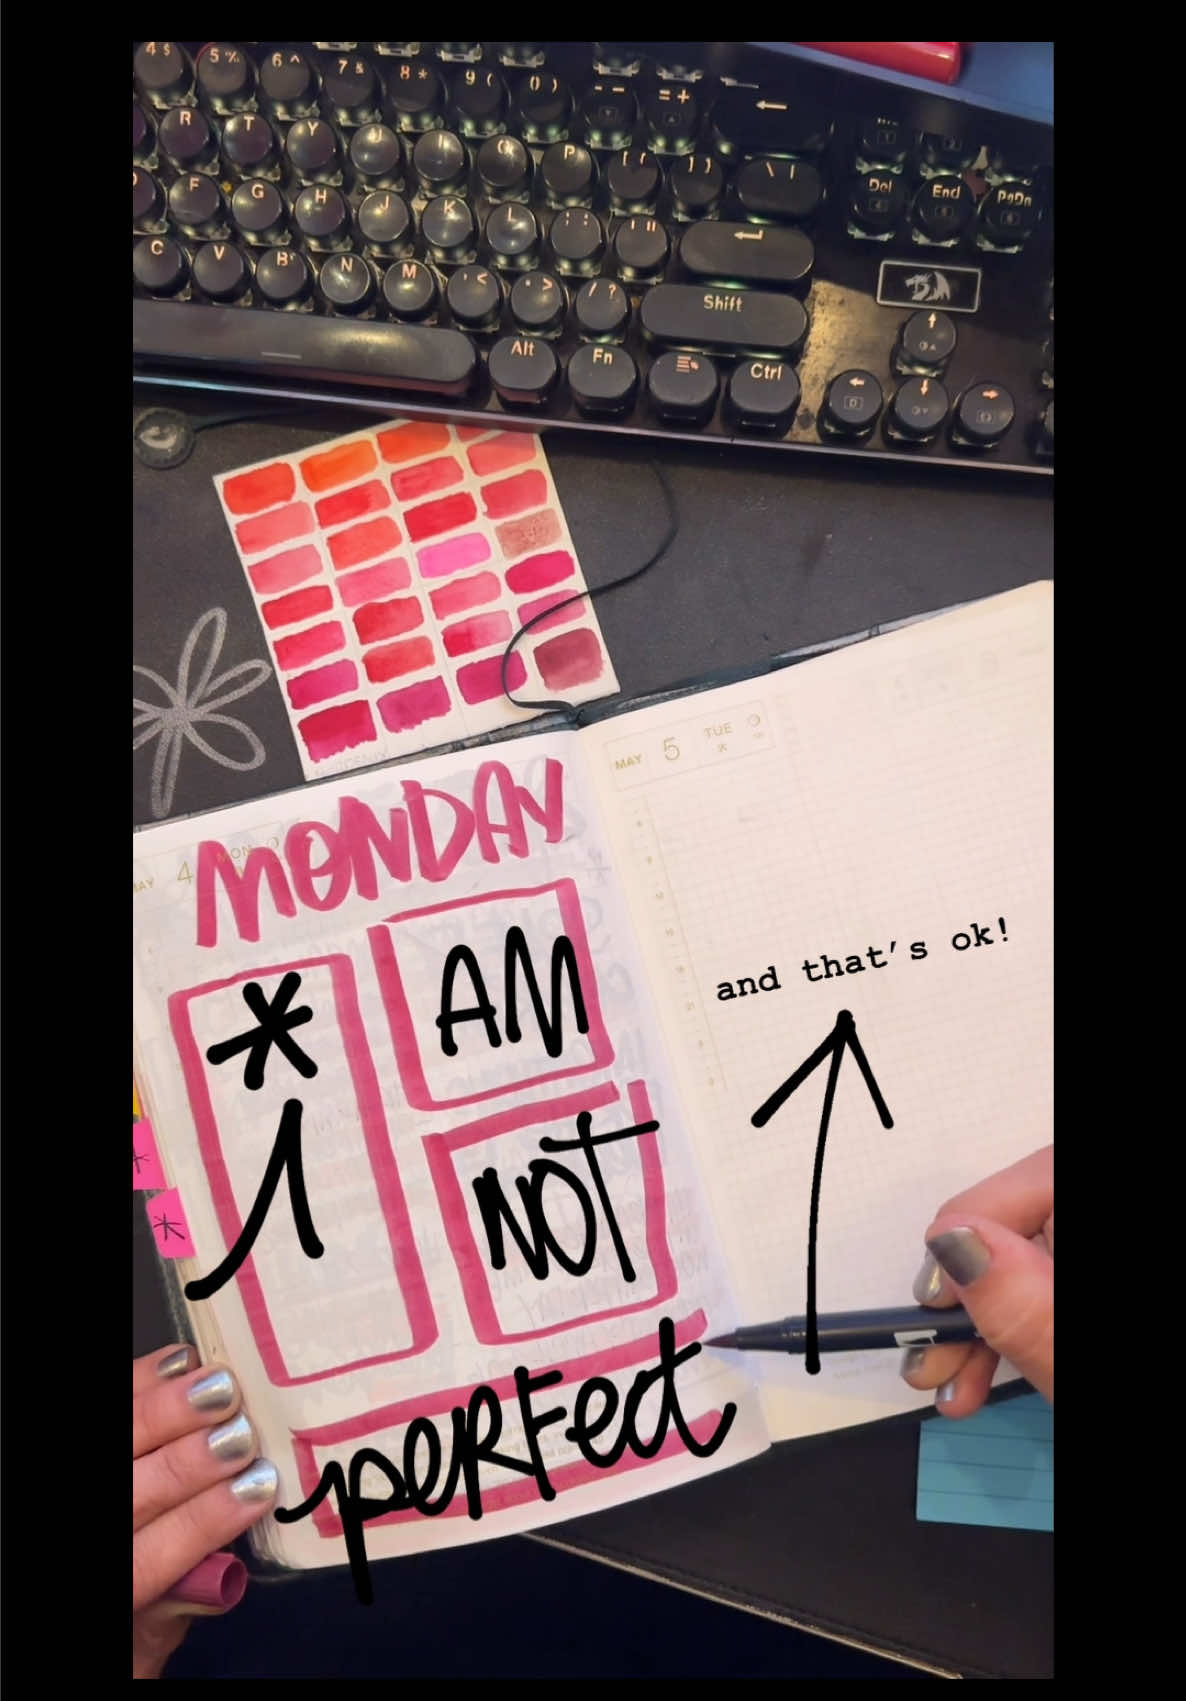 4 $ 5 % 6 ^ 7 & 8 * 9 ( 0 ) - - = +
R T Y U I O P [ { ] } \ |
F G H J K L ; : ' "
Del End PgDn
C V B N M , < . > / ? Shift
Alt Fn Ctrl
MAY 5 TUE
MAY 4 MON
MONDAY
* I
AM
NOT
PERFect
and that's ok!